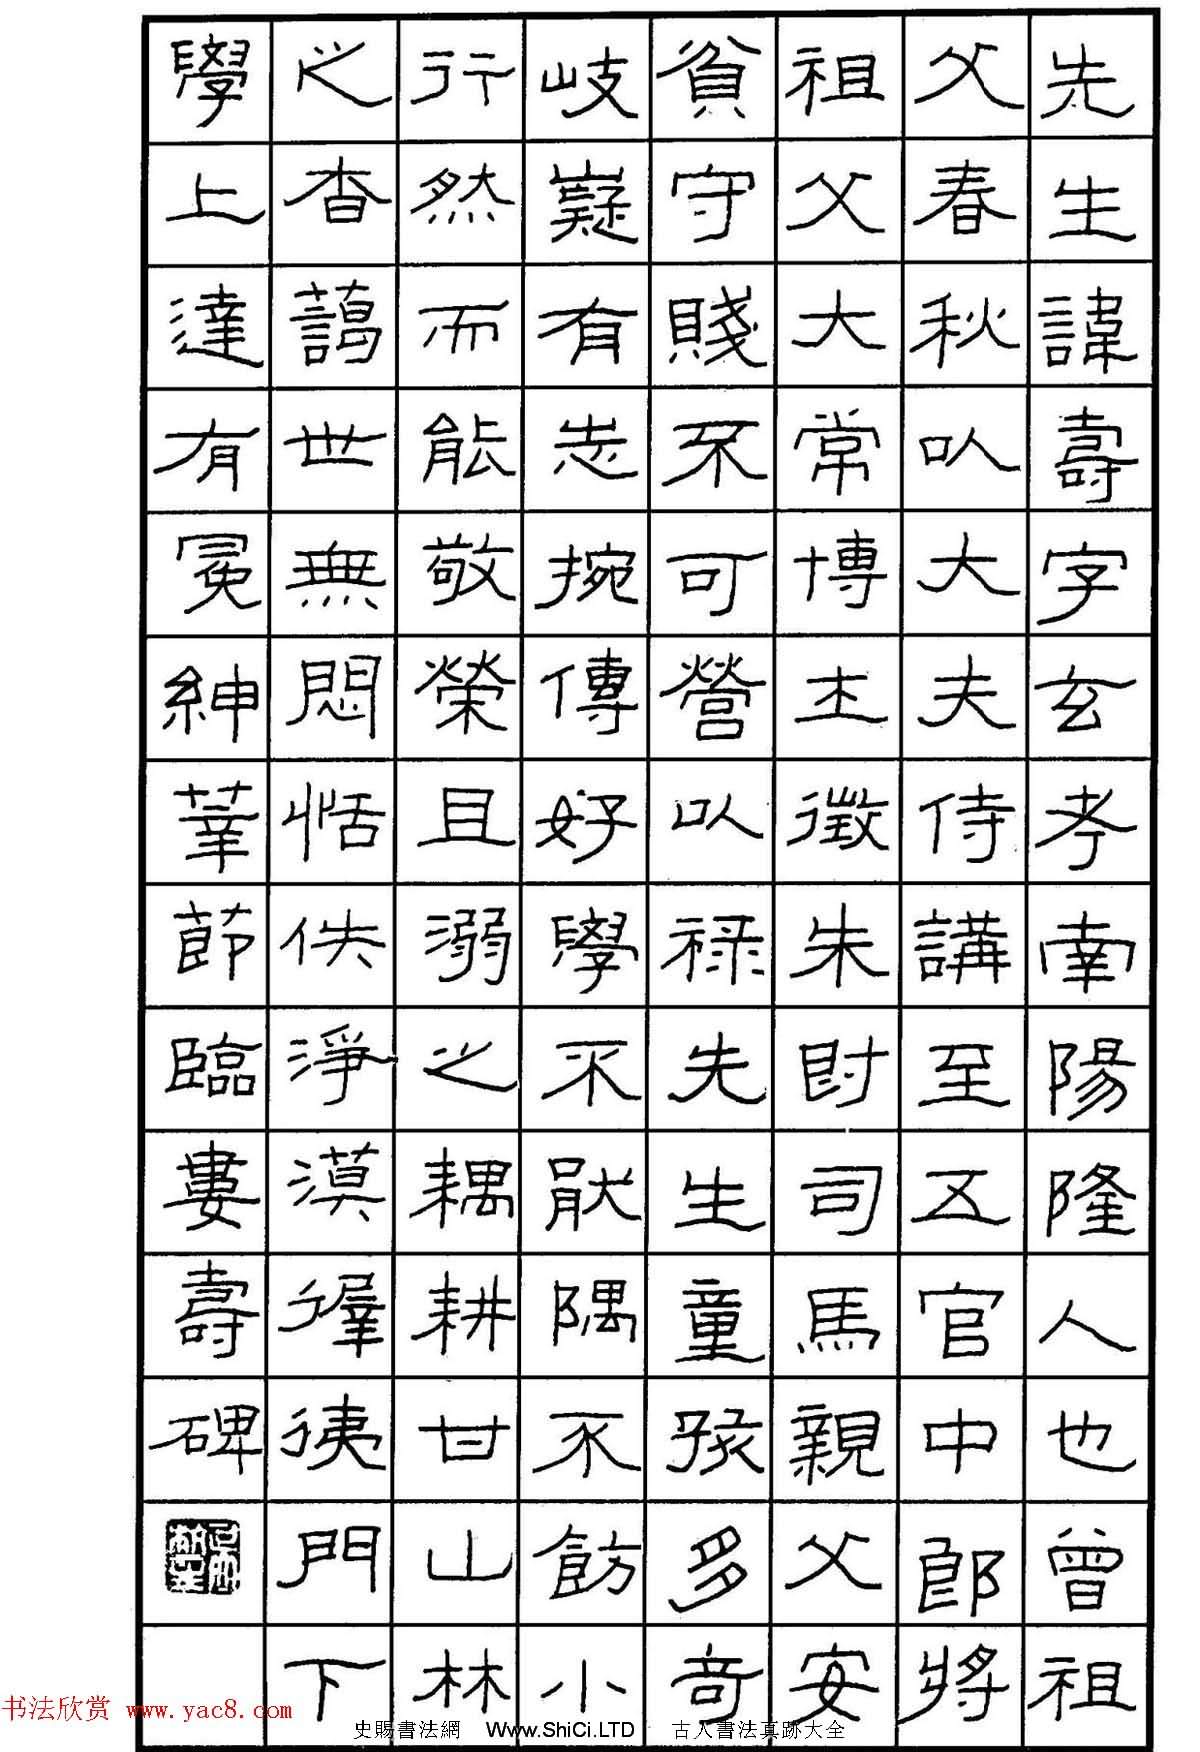 先生諱壽字玄考南陽隆人也曾祖
父春秋以大夫侍講至五官中郎將
祖父大常博士徵朱爵司馬親父安
貧守賤不可營以祿先生童孩多奇
岐嶷有志捥傳好學不猒隅不飭小
行然而能敬榮且溺之耦耕甘山林
之杳藹世無悶恬佚淨漠徲𢓡門下
學上達有冕紳莘節臨婁壽碑
书法欣赏 www.yac8.com
史賜書法網 Www.ShiCi.LTD 古人書法真跡大全